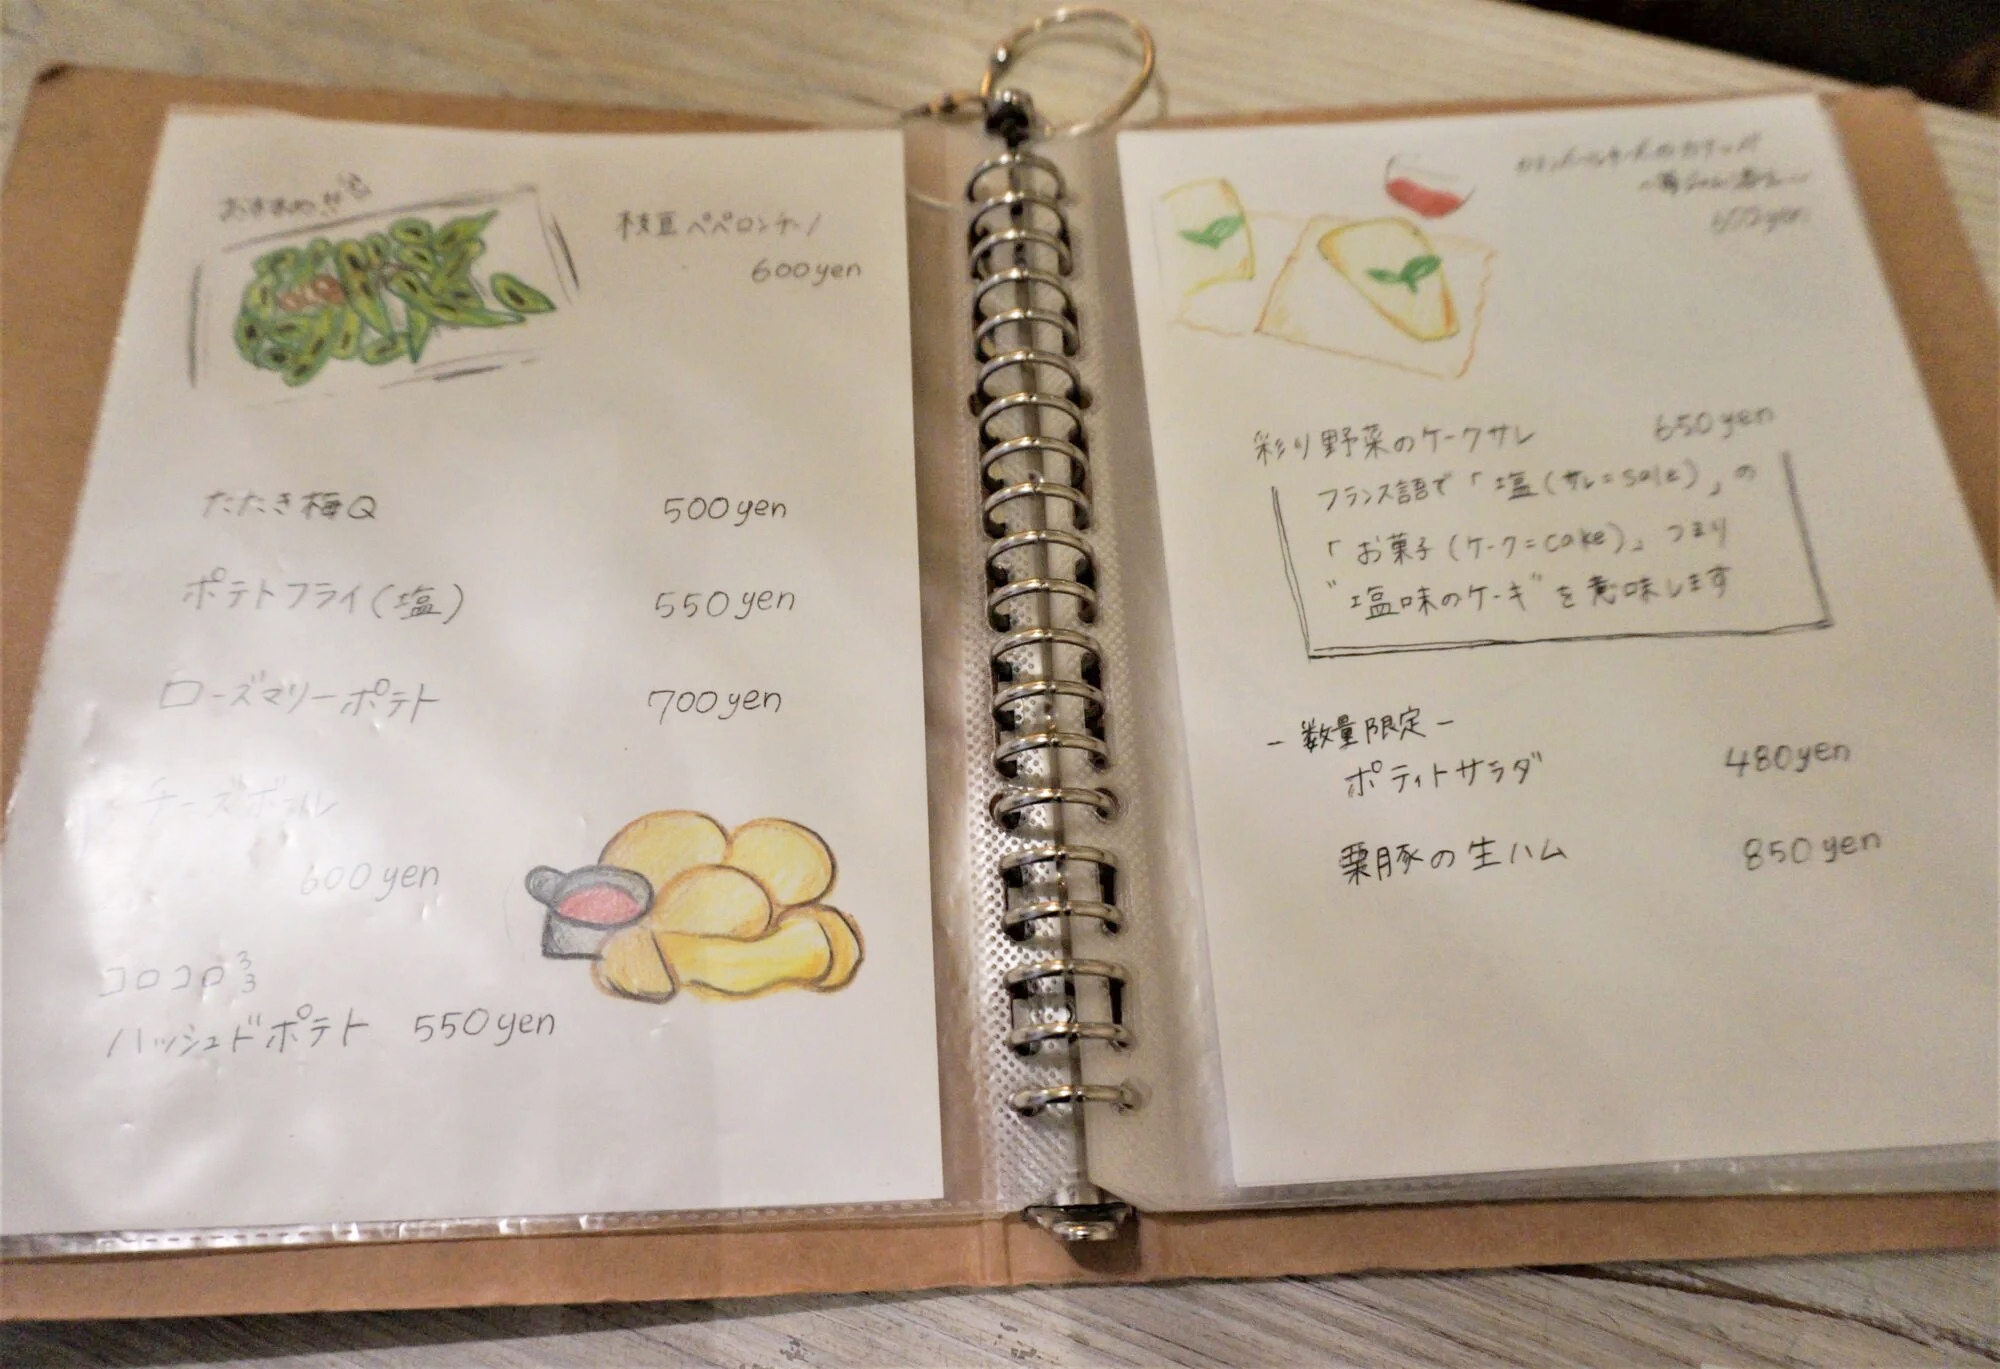 おすすめ!!
枝豆ペペロンチーノ
600yen
たたき梅Q 500yen
ポテトフライ(塩) 550yen
ローズマリーポテト 700yen
チーズボール
600yen
コロコロ
ハッシュドポテト 550yen
600yen
彩り野菜のケークサレ 650yen
フランス語で「塩(サレ=sale)」の
「お菓子(ケーク=cake)」つまり
"塩味のケーキ"を意味します
-数量限定-
ポティトサラダ 480yen
栗豚の生ハム 850yen